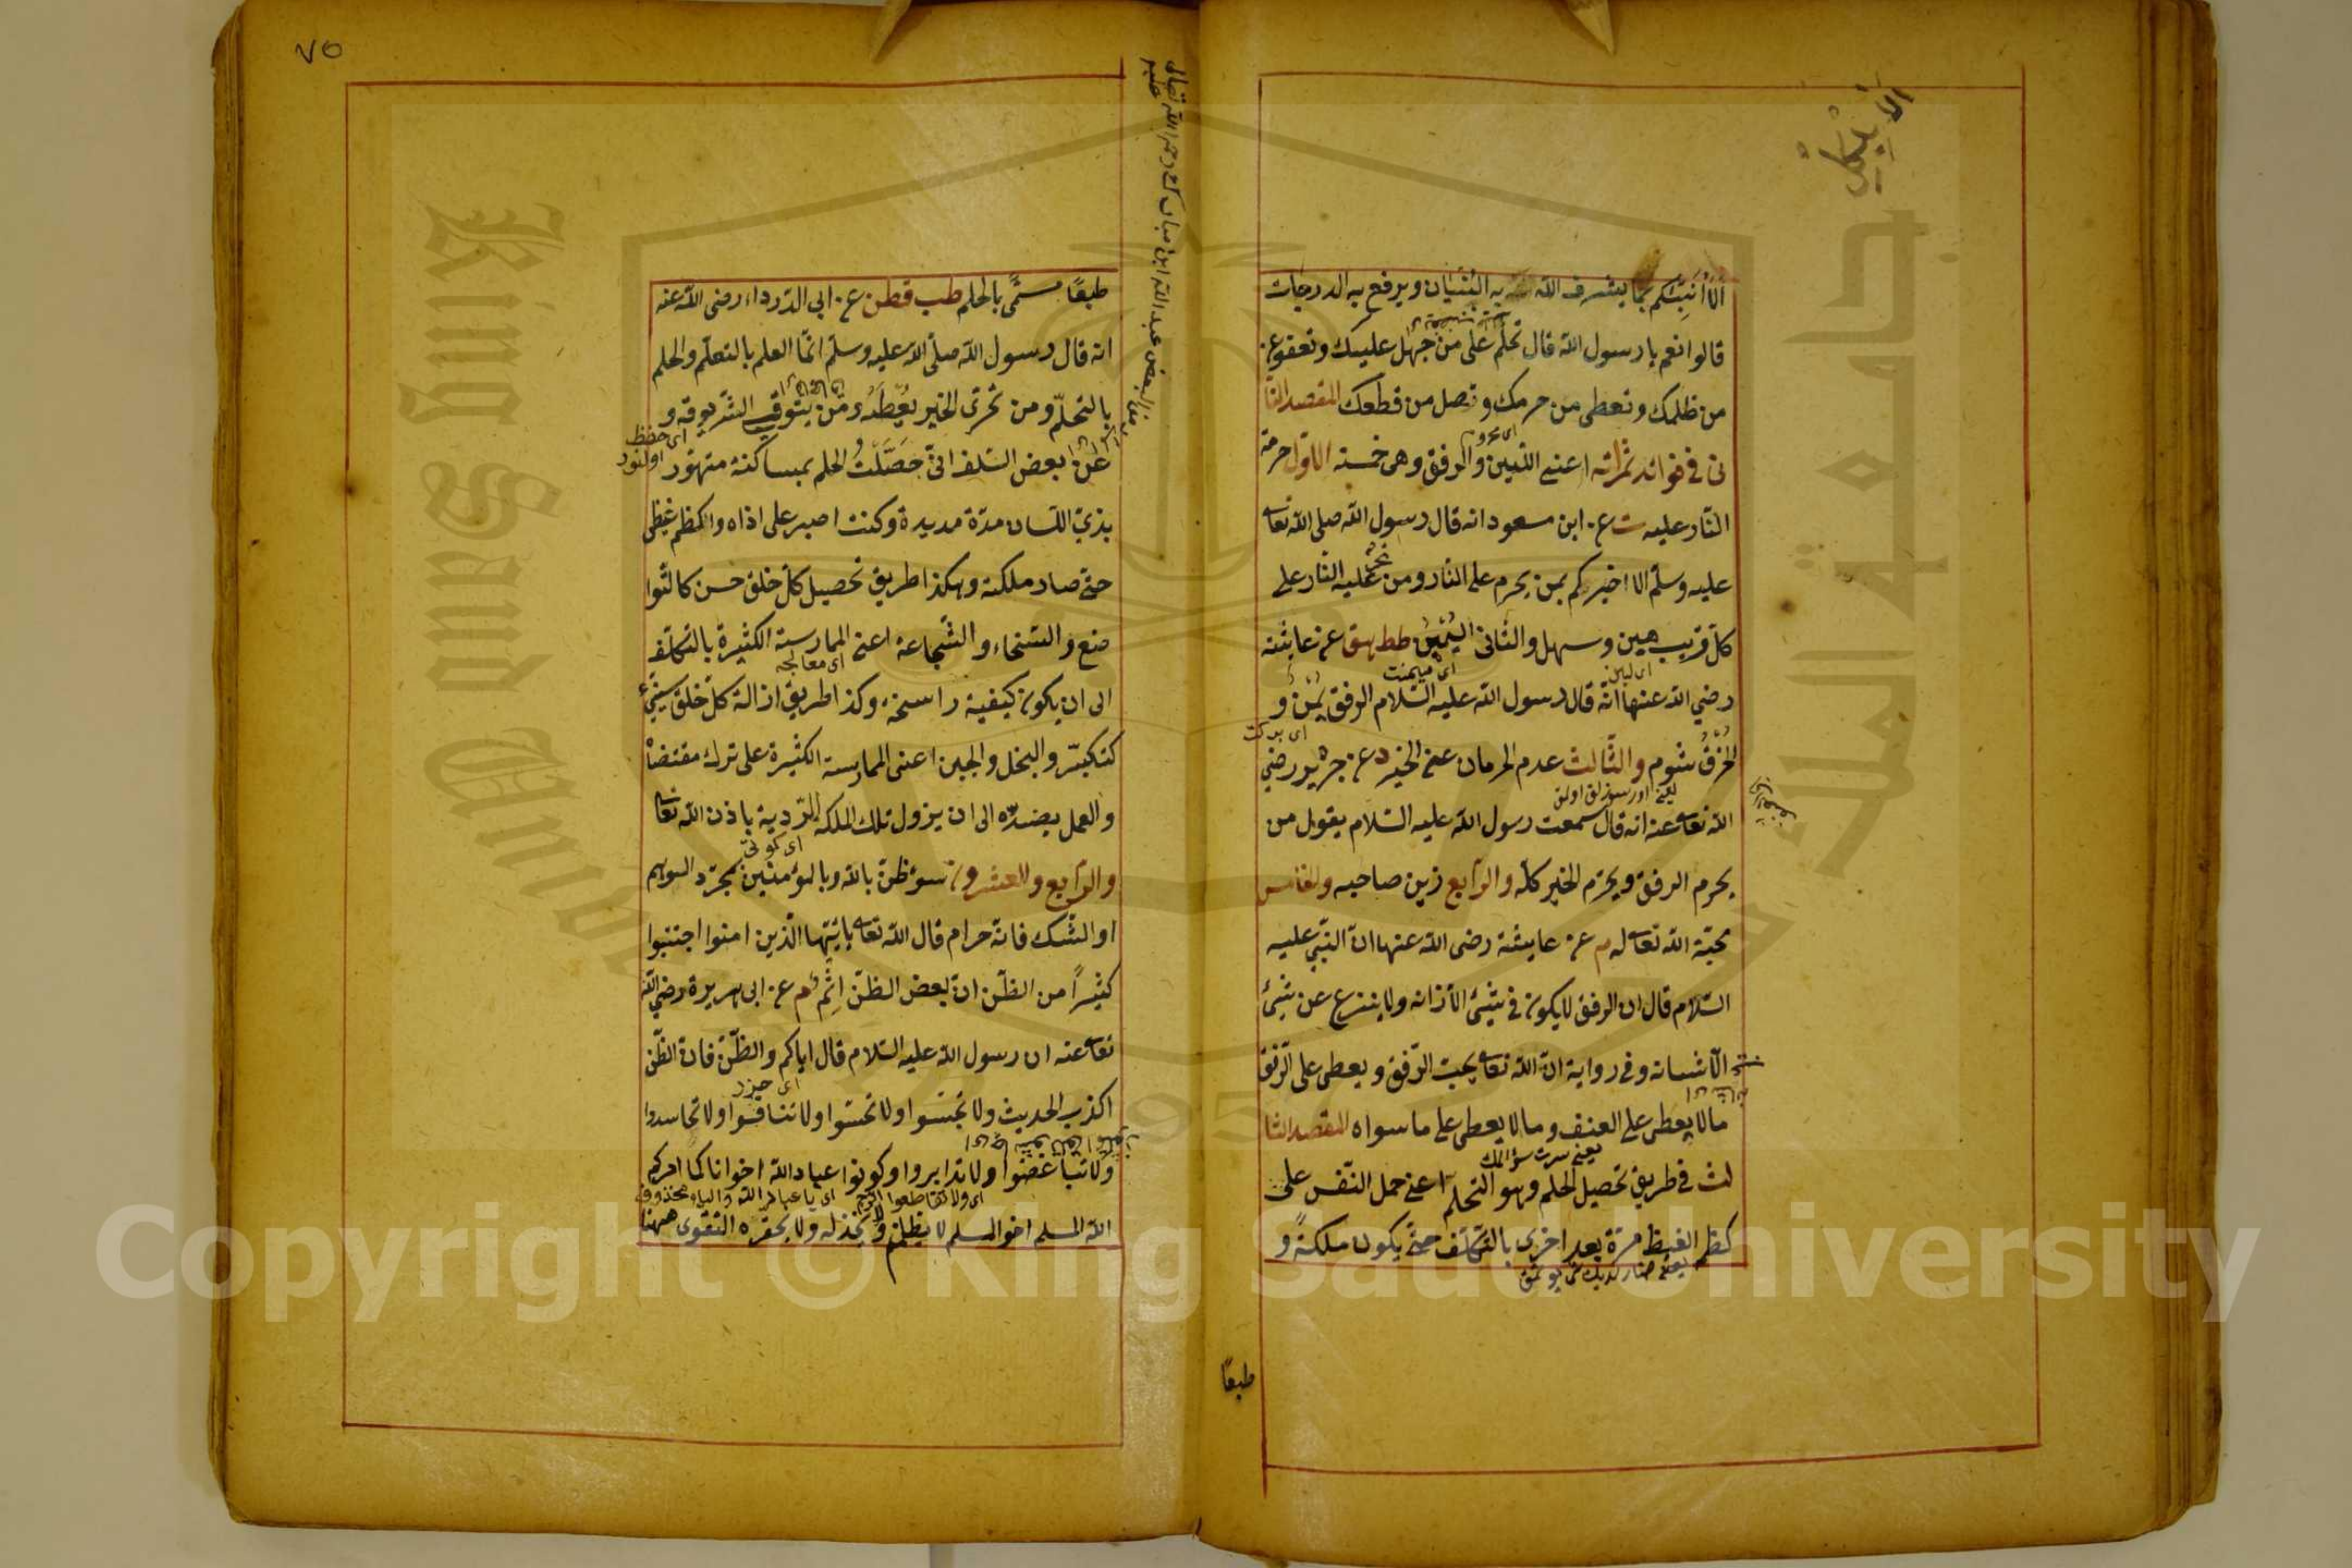 ألا أنبئكم بما يشرف الله به البنيان ويرفع به الدرجات
قالوا نعم يا رسول الله قال تحلم على من جهل عليك وتعفو عن
من ظلمك وتعطى من حرمك وتصل من قطعك المقصد الثا
نى فى فوائد ثمراته اعنى اللين والرفق وهى خمسة الاول حرمة
النار عليه ت عن ابن مسعود انه قال رسول الله صلى الله تعالى
عليه وسلم الا اخبركم بمن يحرم على النار ومن تحرم عليه النار على
كل قريب هين وسهل والثانى اليمن طط هق عن عايشة
رضي الله عنها انه قال رسول الله عليه السلام الرفق يمن و
الخرق شوم والثالث عدم الحرمان عن الخير د عن جرير رضي
الله تعالى عنه انه قال سمعت رسول الله عليه السلام يقول من
يحرم الرفق ويحرم الخير كله والرابع زين صاحبه والخامس
محبة الله تعالى له م عن عايشة رضى الله عنها ان النبي عليه
السلام قال ان الرفق لا يكون فى شئ الا زانه ولا ينزع عن شئ
الا شانه وفى رواية ان الله تعالى يحب الرفق ويعطى على الرفق
مالا يعطى على العنف وما لا يعطى على ما سواه المقصد الثا
لث فى طريق تحصيل الحلم وهو التحلم اعنى حمل النفس على
كظم الغيظ مرة بعد اخرى بالتكلف حتى يكون ملكة و
طبعًا
٧٥
طبعًا مسمى بالحلم طب قطن عن ابى الدرداء رضى الله عنه
انه قال رسول الله صلى الله عليه وسلم انما العلم بالتعلم والحلم
بالتحلم ومن تحرى الخير يعطه ومن يتوق الشر يوقه و
عن بعض السلف انى حصلت الحلم بمساكنة متهور
بذي اللسان مدة مديدة وكنت اصبر على اذاه واكظم غيظى
حتى صار ملكة وهكذا طريق تحصيل كل خلق حسن كالتوا
ضع والسخاء والشجاعة اعنى الممارسة الكثيرة بالتكلف
الى ان يكون كيفية راسخة وكذا طريق ازالة كل خلق سيئ
كتكبر والبخل والجبن اعنى الممارسة الكثيرة على ترك مقتضاه
والعمل بضده الى ان يزول تلك الملكة الردية باذن الله تعالى
والرابع والعشرون سوء ظن بالله وبالمؤمنين بمجرد الوهم
او الشك فانه حرام قال الله تعالى ياايها الذين امنوا اجتنبوا
كثيرًا من الظن ان بعض الظن اثم م عن ابى هريرة رضي الله
تعالى عنه ان رسول الله عليه السلام قال اياكم والظن فان الظن
اكذب الحديث ولا تجسسوا ولا تحسسوا ولا تنافسوا ولا تحاسدوا
ولا تباغضوا ولا تدابروا وكونوا عباد الله اخوانا كما امركم
الله المسلم اخو المسلم لا يظلمه ولا يخذله ولا يحقره التقوى ههنا